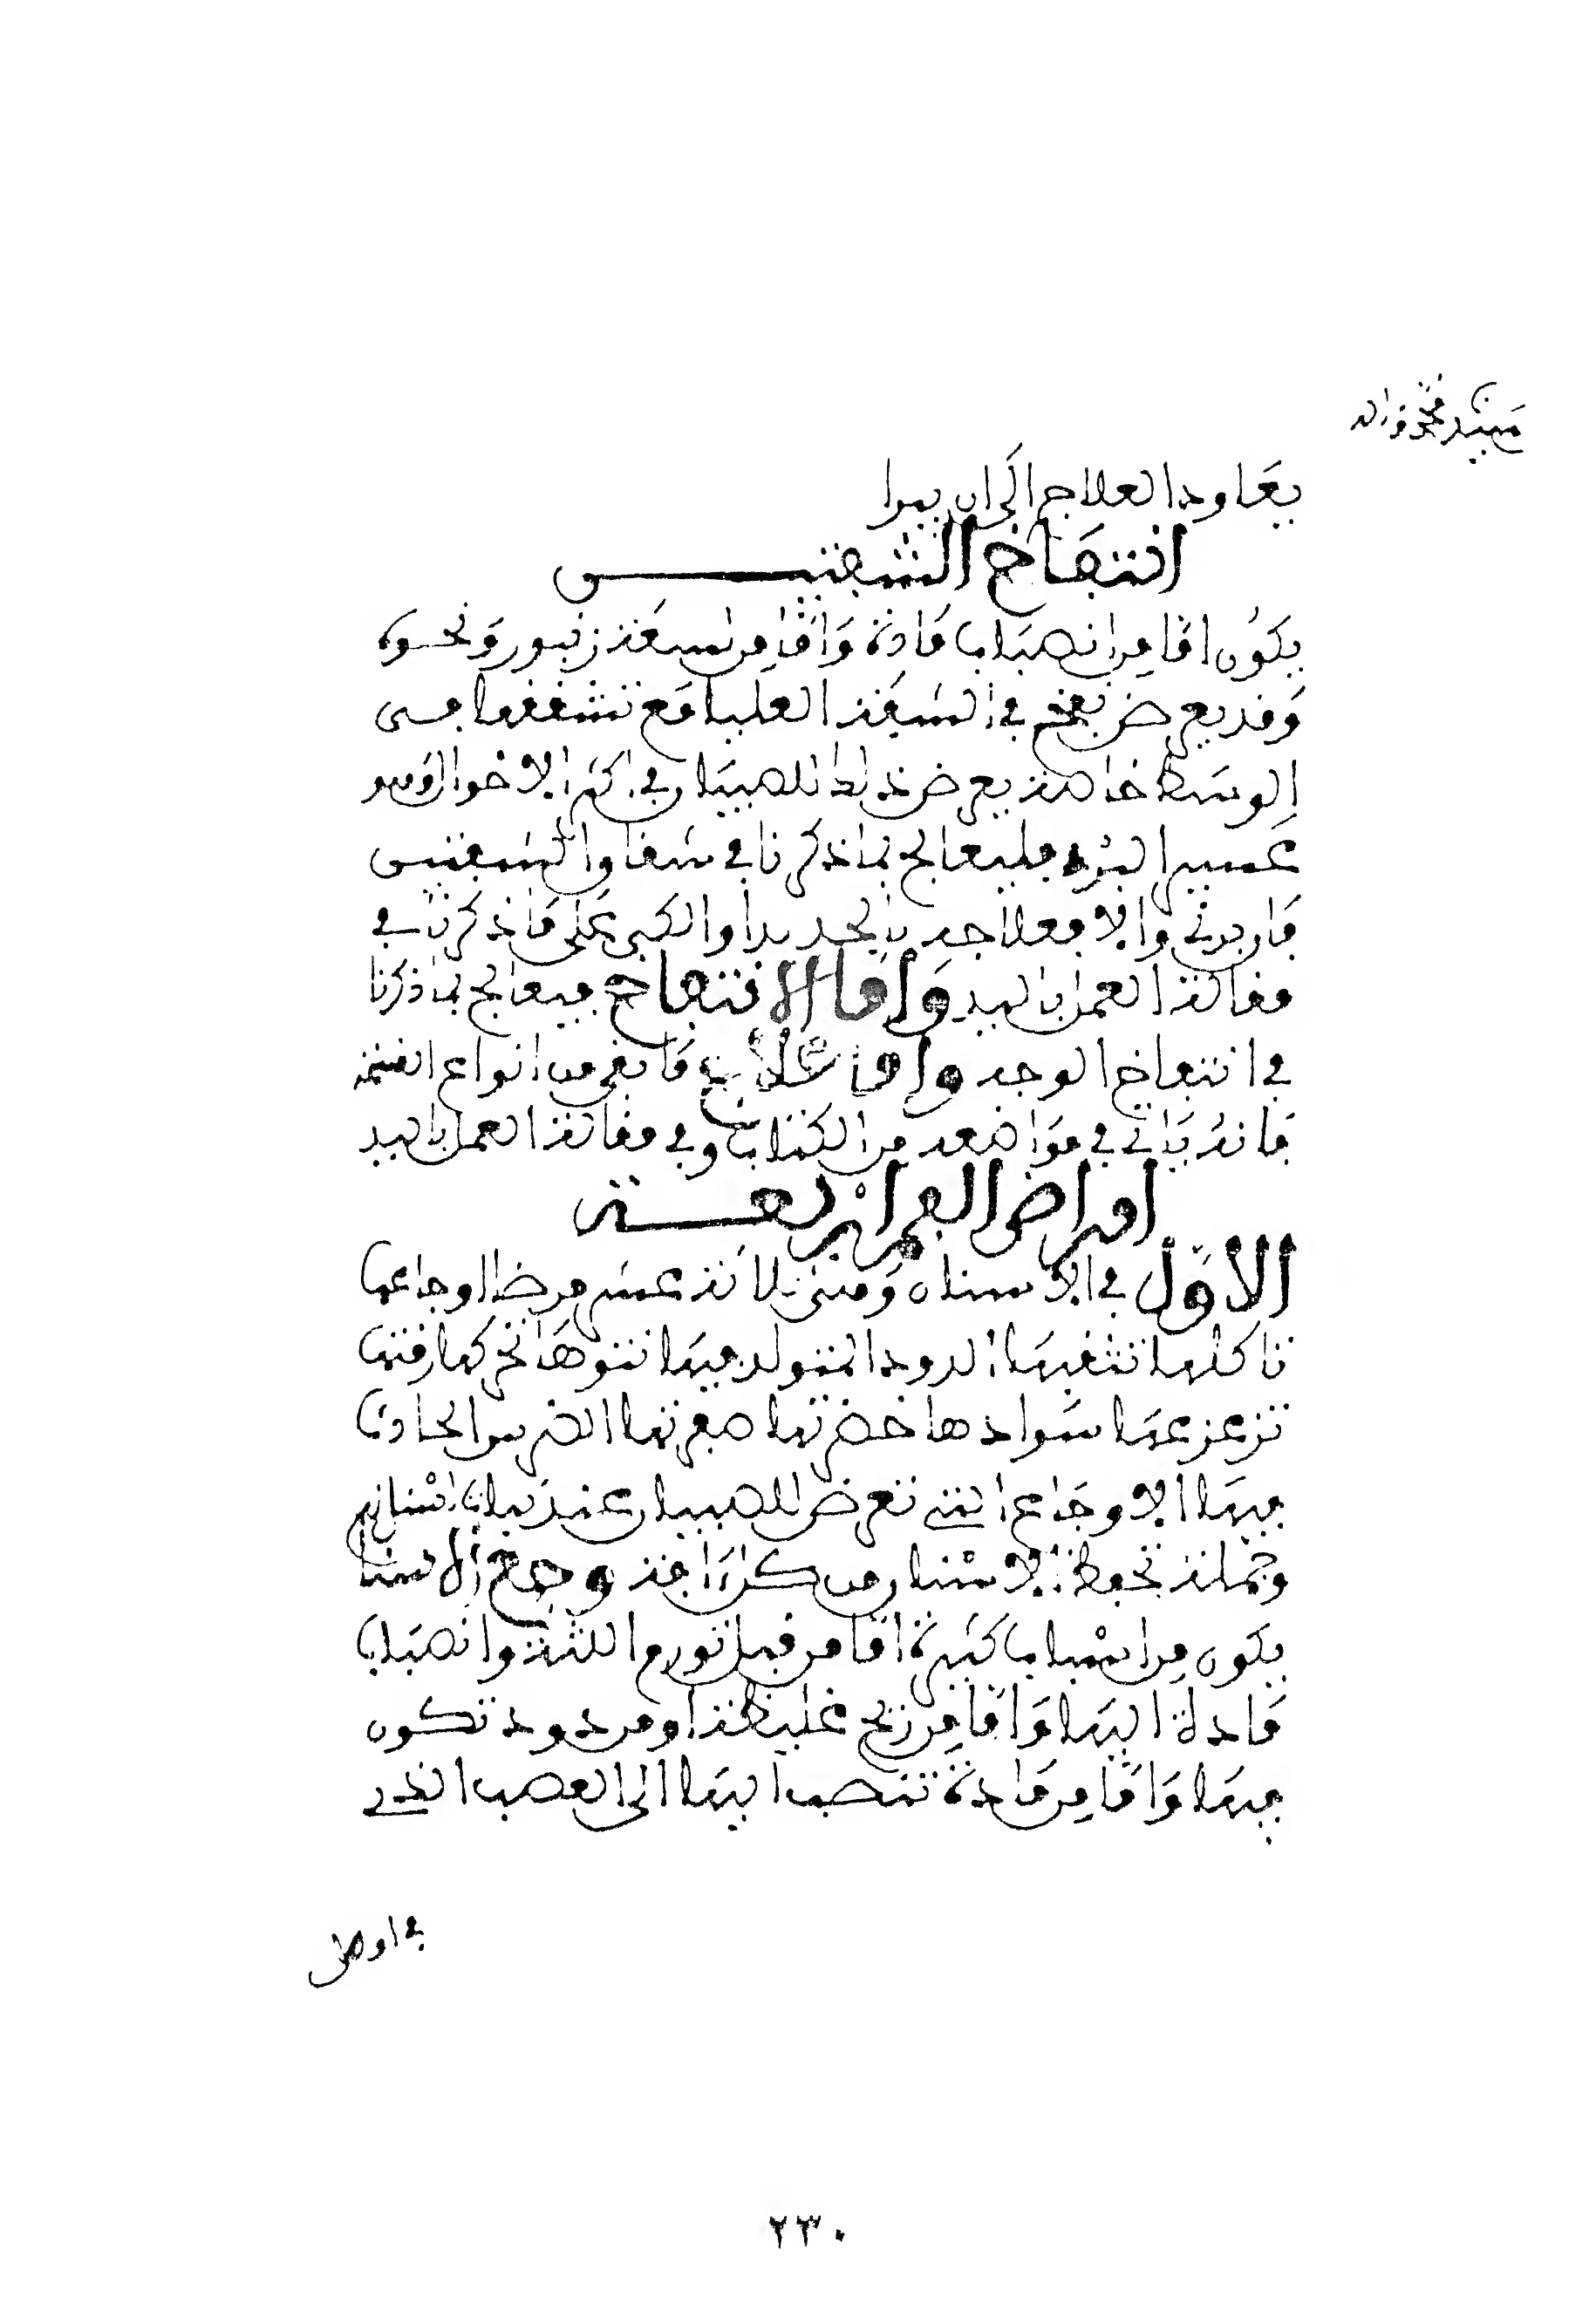 يعاود العلاج الى ان يبرا
انتفاخ الشفتين
يكون اما من انصباب مادة واما من لسعة زنبور ونحوه
وقد يعرض في الشفة العليا مع تشققها من
الوسط خاصة يعرض ذلك للصبيان في اكثر الاحوال وهو
عسير البرء فليعالج بما ذكرنا في شقاق الشفتين
فان برئ والا فعلاجه بالحديد او الكي على ما ذكرنا في
مقالة العمل باليد واما الانتفاخ فيعالج بما ذكرنا
في انتفاخ الوجه واما علاج ما بقي من انواع القسمة
فانه ياتي في مواضعه من الكتاب وفي مقالة العمل باليد
امراض الفم اربعة
الاول في الاسنان وهي ثلاثة عشر مرضا اوجاعها
تاكلها تثقبها الدود المتولد فيها نتوها تحركها رقتها
تزعزعها سوادها خضرتها صفرتها الضرس الحادث
فيها الاوجاع التي تعرض للصبيان عند نبات اسنانهم
وجملة تحفظ الاسنان من كل ءافة وجع الاسنان
يكون من اسباب كثيرة اما من قبل تورم اللثة وانصباب
مادة اليها واما من ريح غليظة او من دود تكون
فيها واما من مادة تنصب اليها الى العصب الذي
في اوصل
٢٣٠